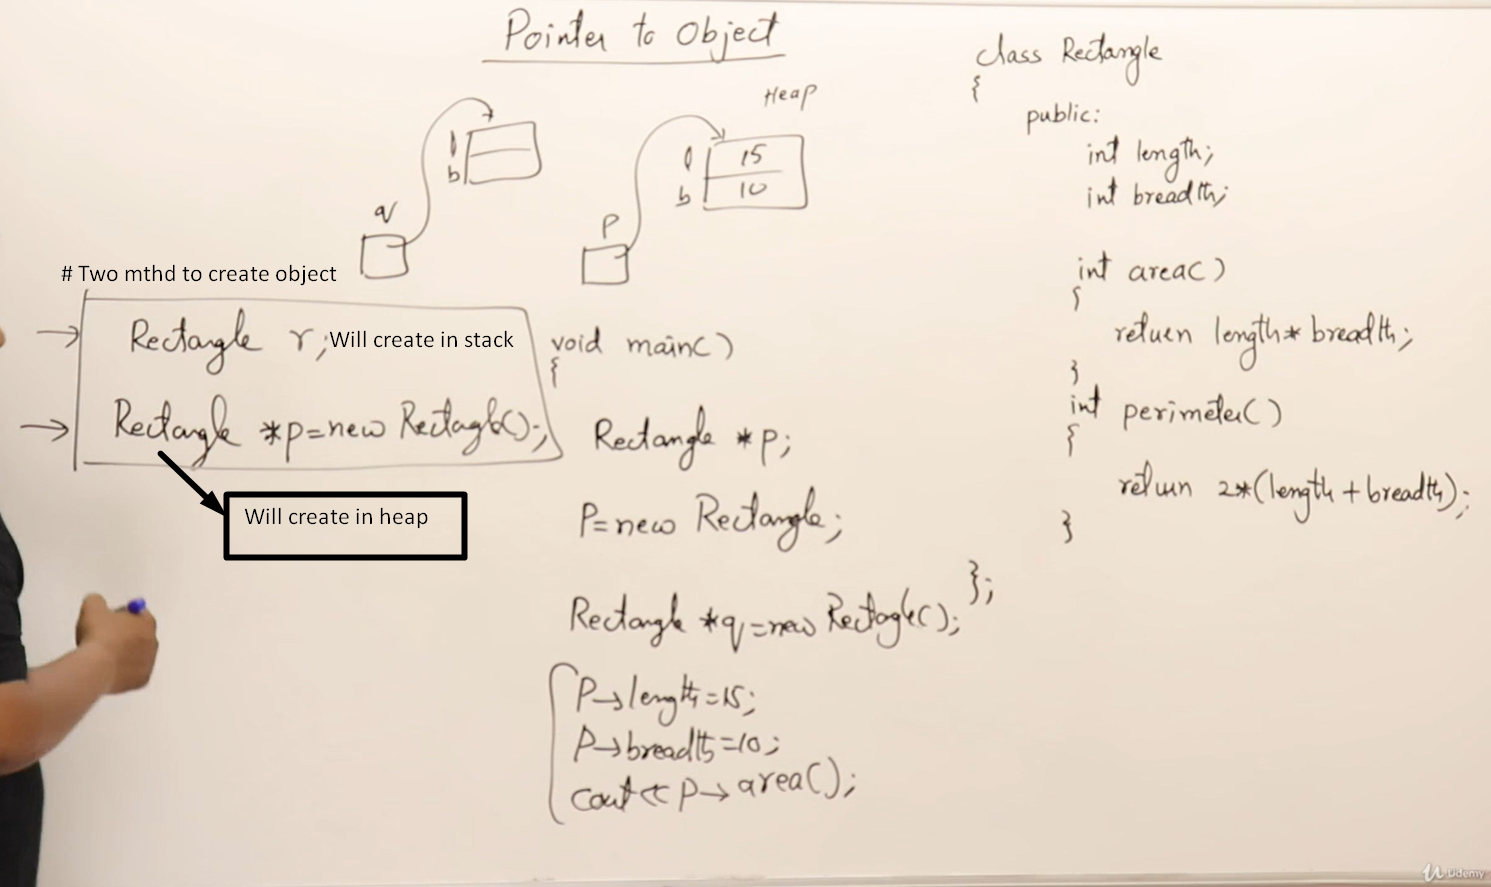 Pointer to Object
Heap
l
b
q
l 15
b 10
p
# Two mthd to create object
Rectangle r; Will create in stack
Rectangle *p=new Rectagle();
Will create in heap
void main()
{
Rectangle *p;
P=new Rectangle;
Rectangle *q=new Rectagle();
P→length=15;
P→breadth=10;
cout<<P→area();
class Rectangle
{
public:
int length;
int breadth;
int area()
{
return length*breadth;
}
int perimeter()
{
return 2*(length+breadth);
}
};
Udemy